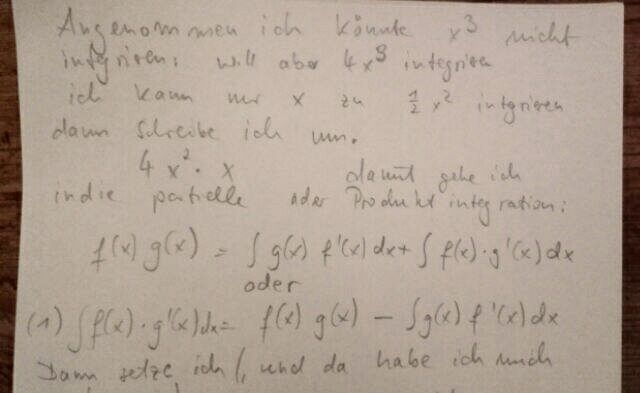 Angenommen ich könnte x³ nicht
integriren; will aber 4x³ integriren
ich kann nur x zu ½ x² intgriren
dann schreibe ich um.
4 x² · x damit gehe ich
in die partielle oder Produkt integration:
f(x) g(x) = ∫ g(x) f'(x) dx + ∫ f(x) · g'(x) dx
oder
(1) ∫ f(x) · g'(x) dx = f(x) g(x) − ∫ g(x) f'(x) dx
Dann setze ich (, und da habe ich mich